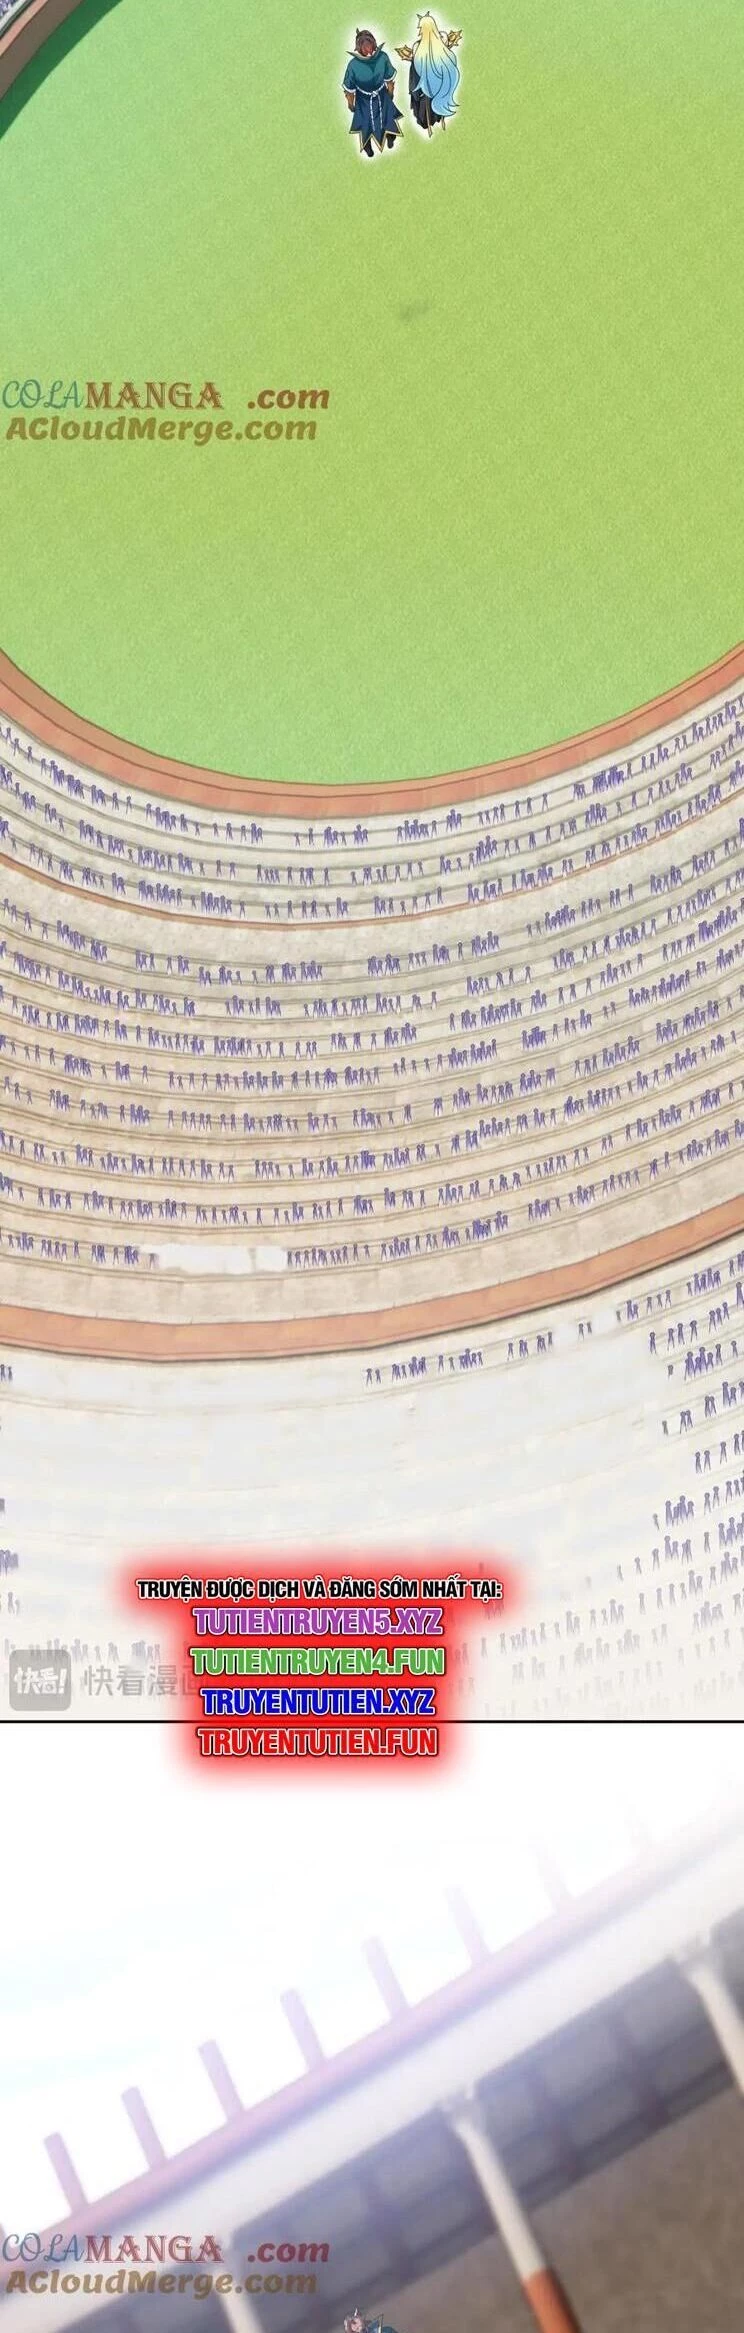 COLAMANGA .com
ACloudMerge.com
TRUYỆN ĐƯỢC DỊCH VÀ ĐĂNG SỚM NHẤT TẠI:
TUTIENTRUYEN5.XYZ
TUTIENTRUYEN4.FUN
快看! 快看漫画
TRUYENTUTIEN.XYZ
TRUYENTUTIEN.FUN
COLAMANGA .com
ACloudMerge.com